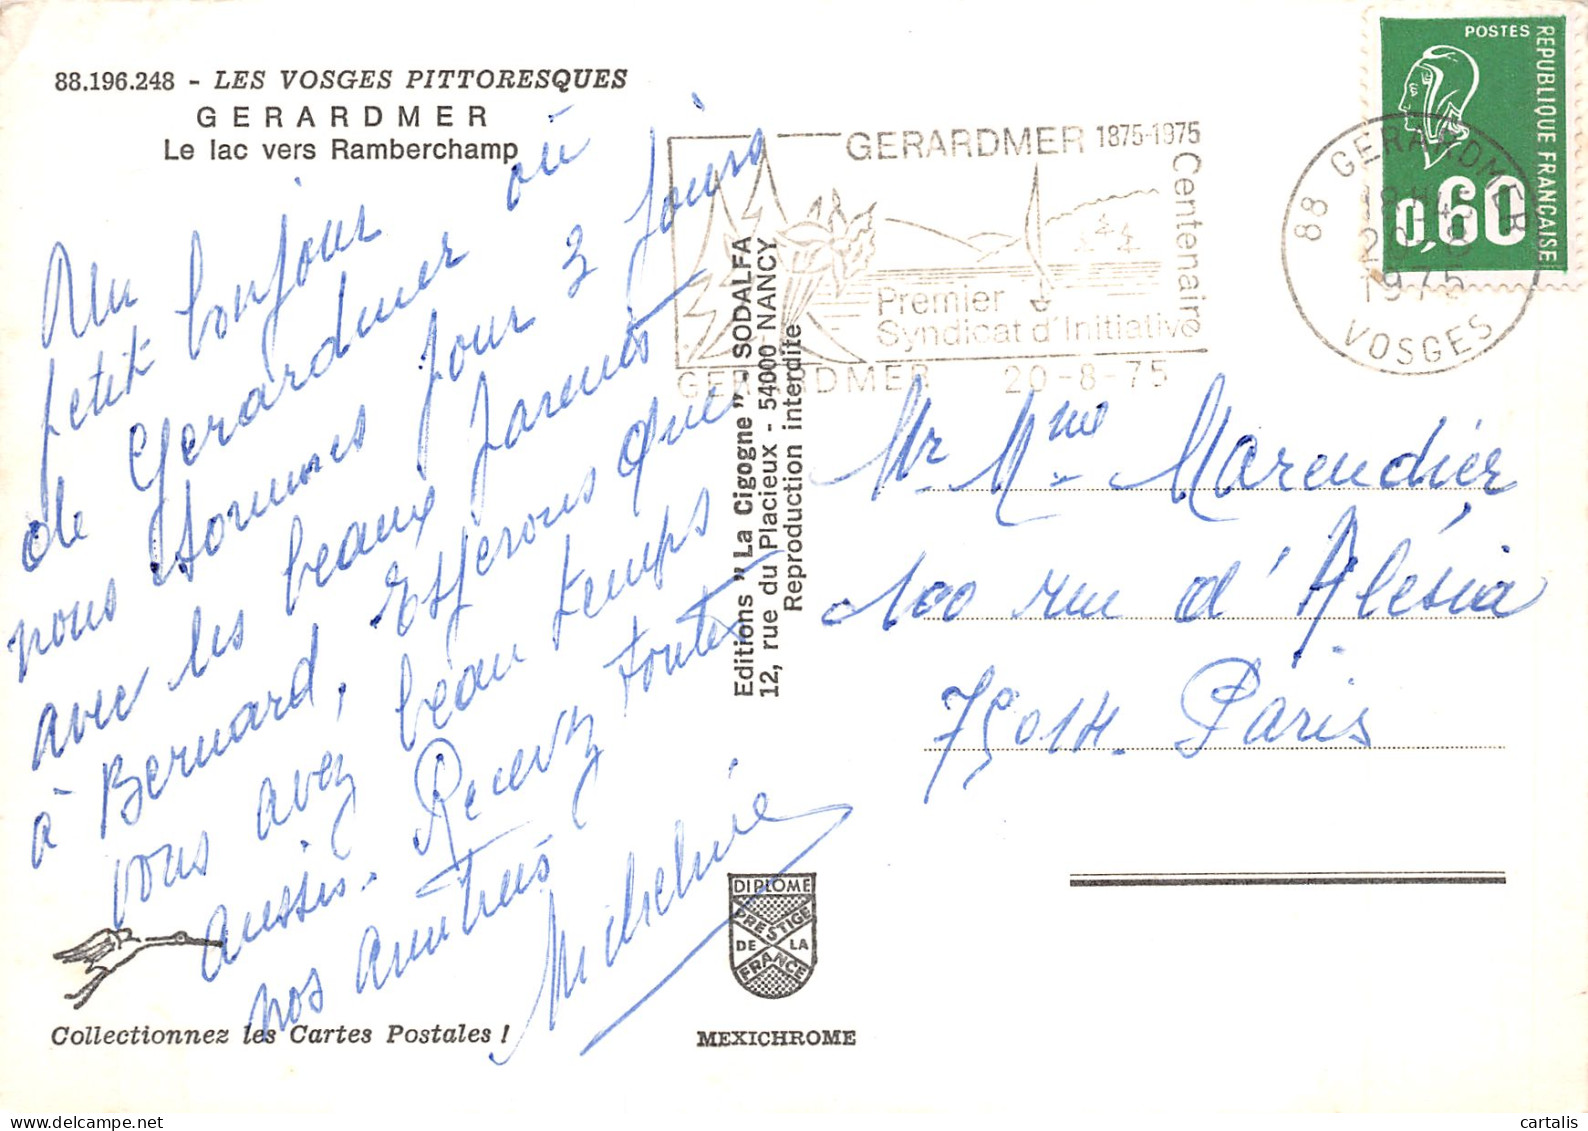 88.196.248 - LES VOSGES PITTORESQUES
GERARDMER
Le lac vers Ramberchamp
Un
petit bonjour
de Gerardmer où
nous sommes pour 3 jours
avec les beaux parents
à Bernard, Espérons que
vous avez beau temps
aussi. Recevez toutes
nos amitiés
Micheline
Collectionnez les Cartes Postales !
Editions "La Cigogne" - SODALFA
12, rue du Placieux - 54000 NANCY
Reproduction interdite
DIPLOME
PRESTIGE
DE LA
FRANCE
MEXICHROME
GERARDMER 1875-1975
Centenaire
Premier
Syndicat d'Initiative
GERARDMER 20-8-75
POSTES
REPUBLIQUE FRANCAISE
0,60
88 GERARDMER
18H
20-8
1975
VOSGES
Mr Mme Marendier
100 rue d'Alésia
75014. Paris
cartalis